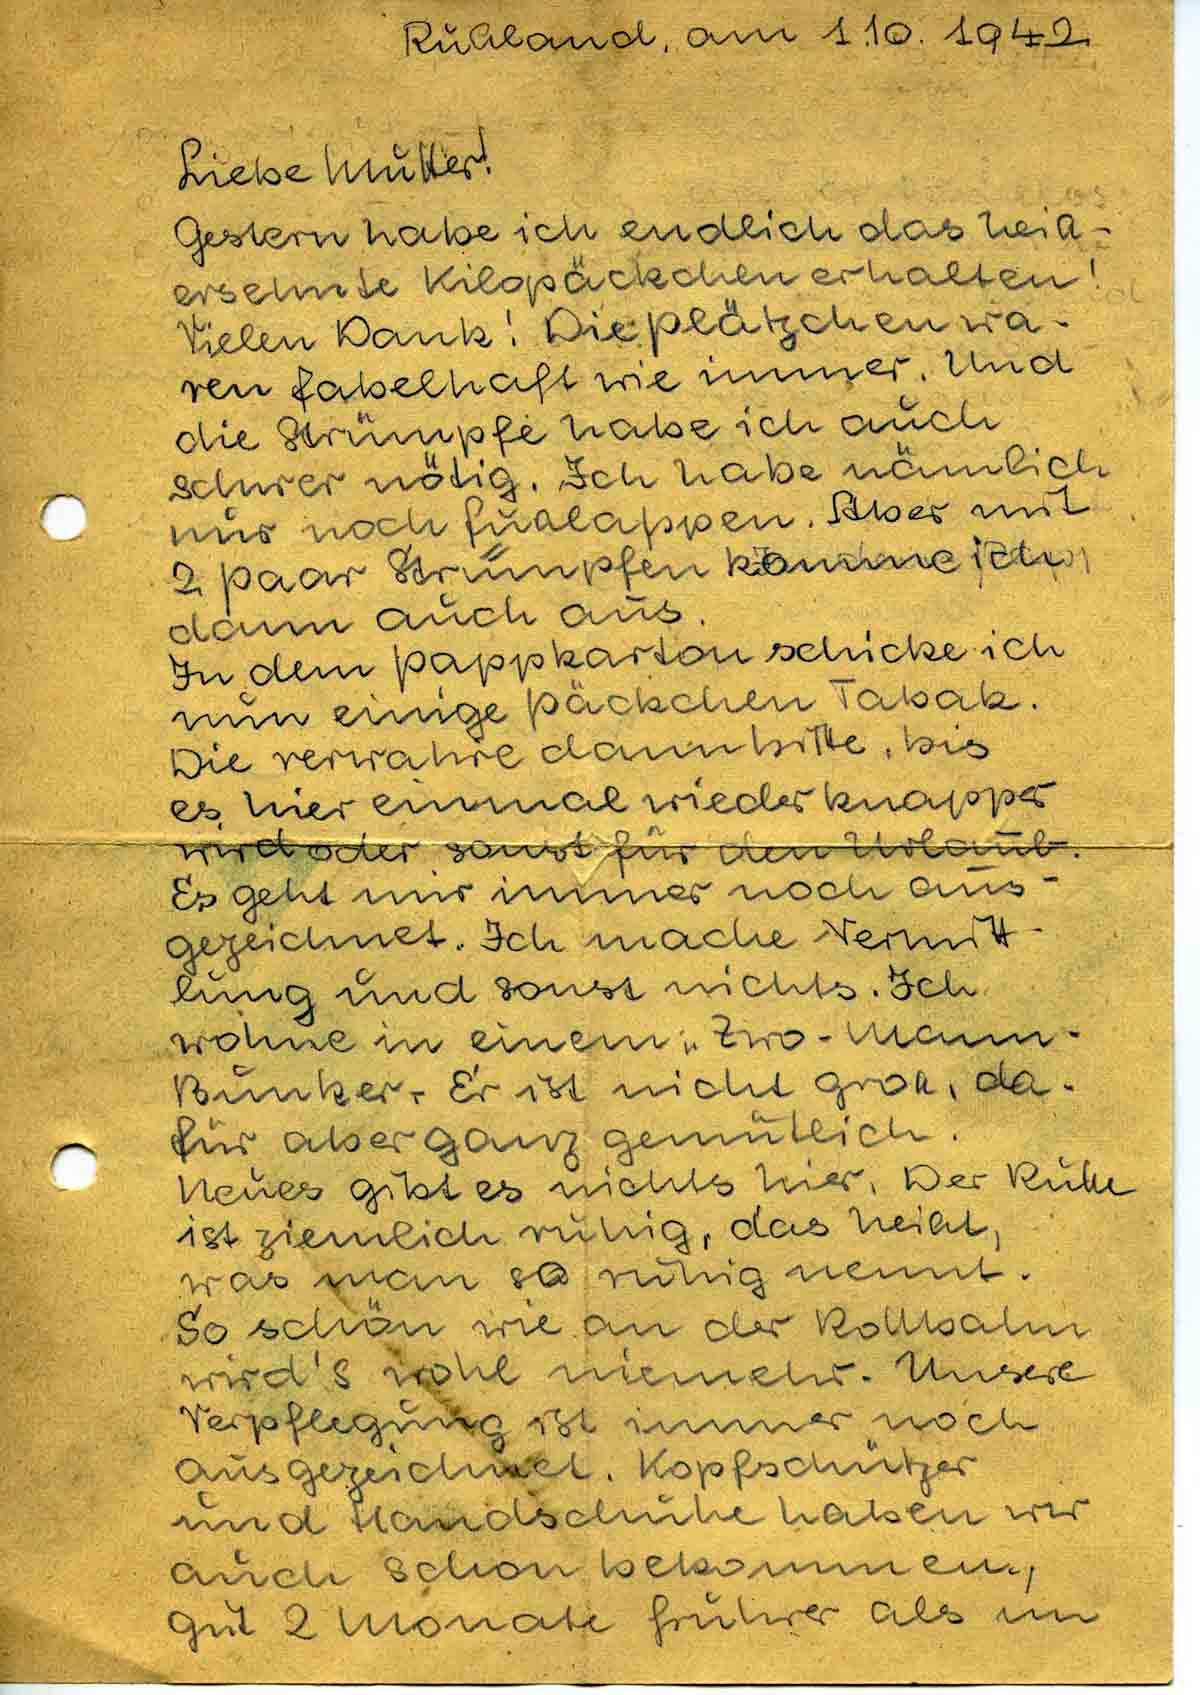 Rußland, am 1.10.1942
Liebe Mutter!
Gestern habe ich endlich das heiß-
ersehnte Kilopäckchen erhalten!
Vielen Dank! Die Plätzchen wa-
ren fabelhaft wie immer. Und
die Strümpfe habe ich auch
schwer nötig. Ich habe nämlich
nur noch Fußlappen. Aber mit
2 Paar Strümpfen komme ich
dann auch aus.
In dem Pappkarton schicke ich
nun einige Päckchen Tabak.
Die verwahre dann bitte, bis
es hier einmal wieder knapper
wird oder sonst für den Urlaub.
Es geht mir immer noch aus-
gezeichnet. Ich mache Vermitt-
lung und sonst nichts. Ich
wohne in einem „Zwo-Mann-
Bunker. Er ist nicht groß, da-
für aber ganz gemütlich.
Neues gibt es nichts hier. Der Ruße
ist ziemlich ruhig, das heißt,
was man so ruhig nennt.
So schön wie an der Rollbahn
wird's wohl niemehr. Unsere
Verpflegung ist immer noch
ausgezeichnet. Kopfschützer
und Handschuhe haben wir
auch schon bekommen,
gut 2 Monate früher als im